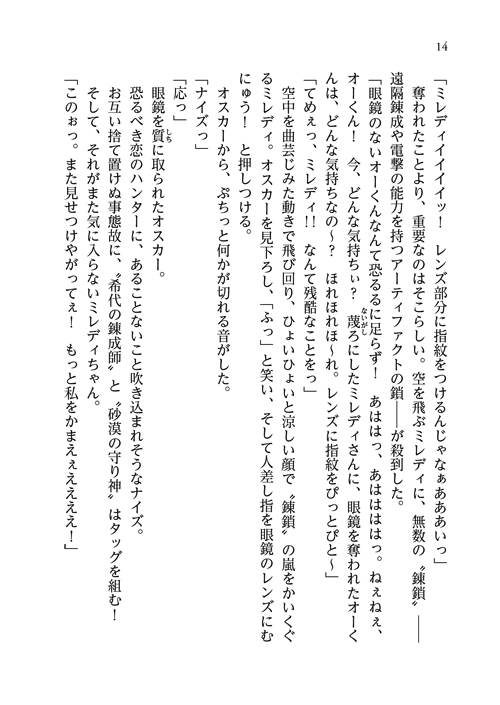 14
「ミレディイイイイッ！　レンズ部分に指紋をつけるんじゃなぁあああいっ」
奪われたことより、重要なのはそこらしい。空を飛ぶミレディに、無数の〝錬鎖〟――
遠隔錬成や電撃の能力を持つアーティファクトの鎖――が殺到した。
「眼鏡のないオーくんなんて恐るるに足らず！　あははっ、あはははははっ。ねぇねぇ、
オーくん！　今、どんな気持ちぃ？　蔑ろにしたミレディさんに、眼鏡を奪われたオーく
ないがし
んは、どんな気持ちなの～？　ほれほれほ～れ。レンズに指紋をぴっとぴと～」
「てめぇっ、ミレディ!!　なんて残酷なことをっ」
空中を曲芸じみた動きで飛び回り、ひょいひょいと涼しい顔で〝錬鎖〟の嵐をかいくぐ
るミレディ。オスカーを見下ろし、「ふっ」と笑い、そして人差し指を眼鏡のレンズにむ
にゅう！　と押しつける。
オスカーから、ぷちっと何かが切れる音がした。
「ナイズっ」
「応っ」
眼鏡を質に取られたオスカー。
しち
恐るべき恋のハンターに、あることないこと吹き込まれそうなナイズ。
お互い捨て置けぬ事態故に、〝希代の錬成師〟と〝砂漠の守り神〟はタッグを組む！
そして、それがまた気に入らないミレディちゃん。
「このぉっ。また見せつけやがってぇ！　もっと私をかまえぇえええぇ！」